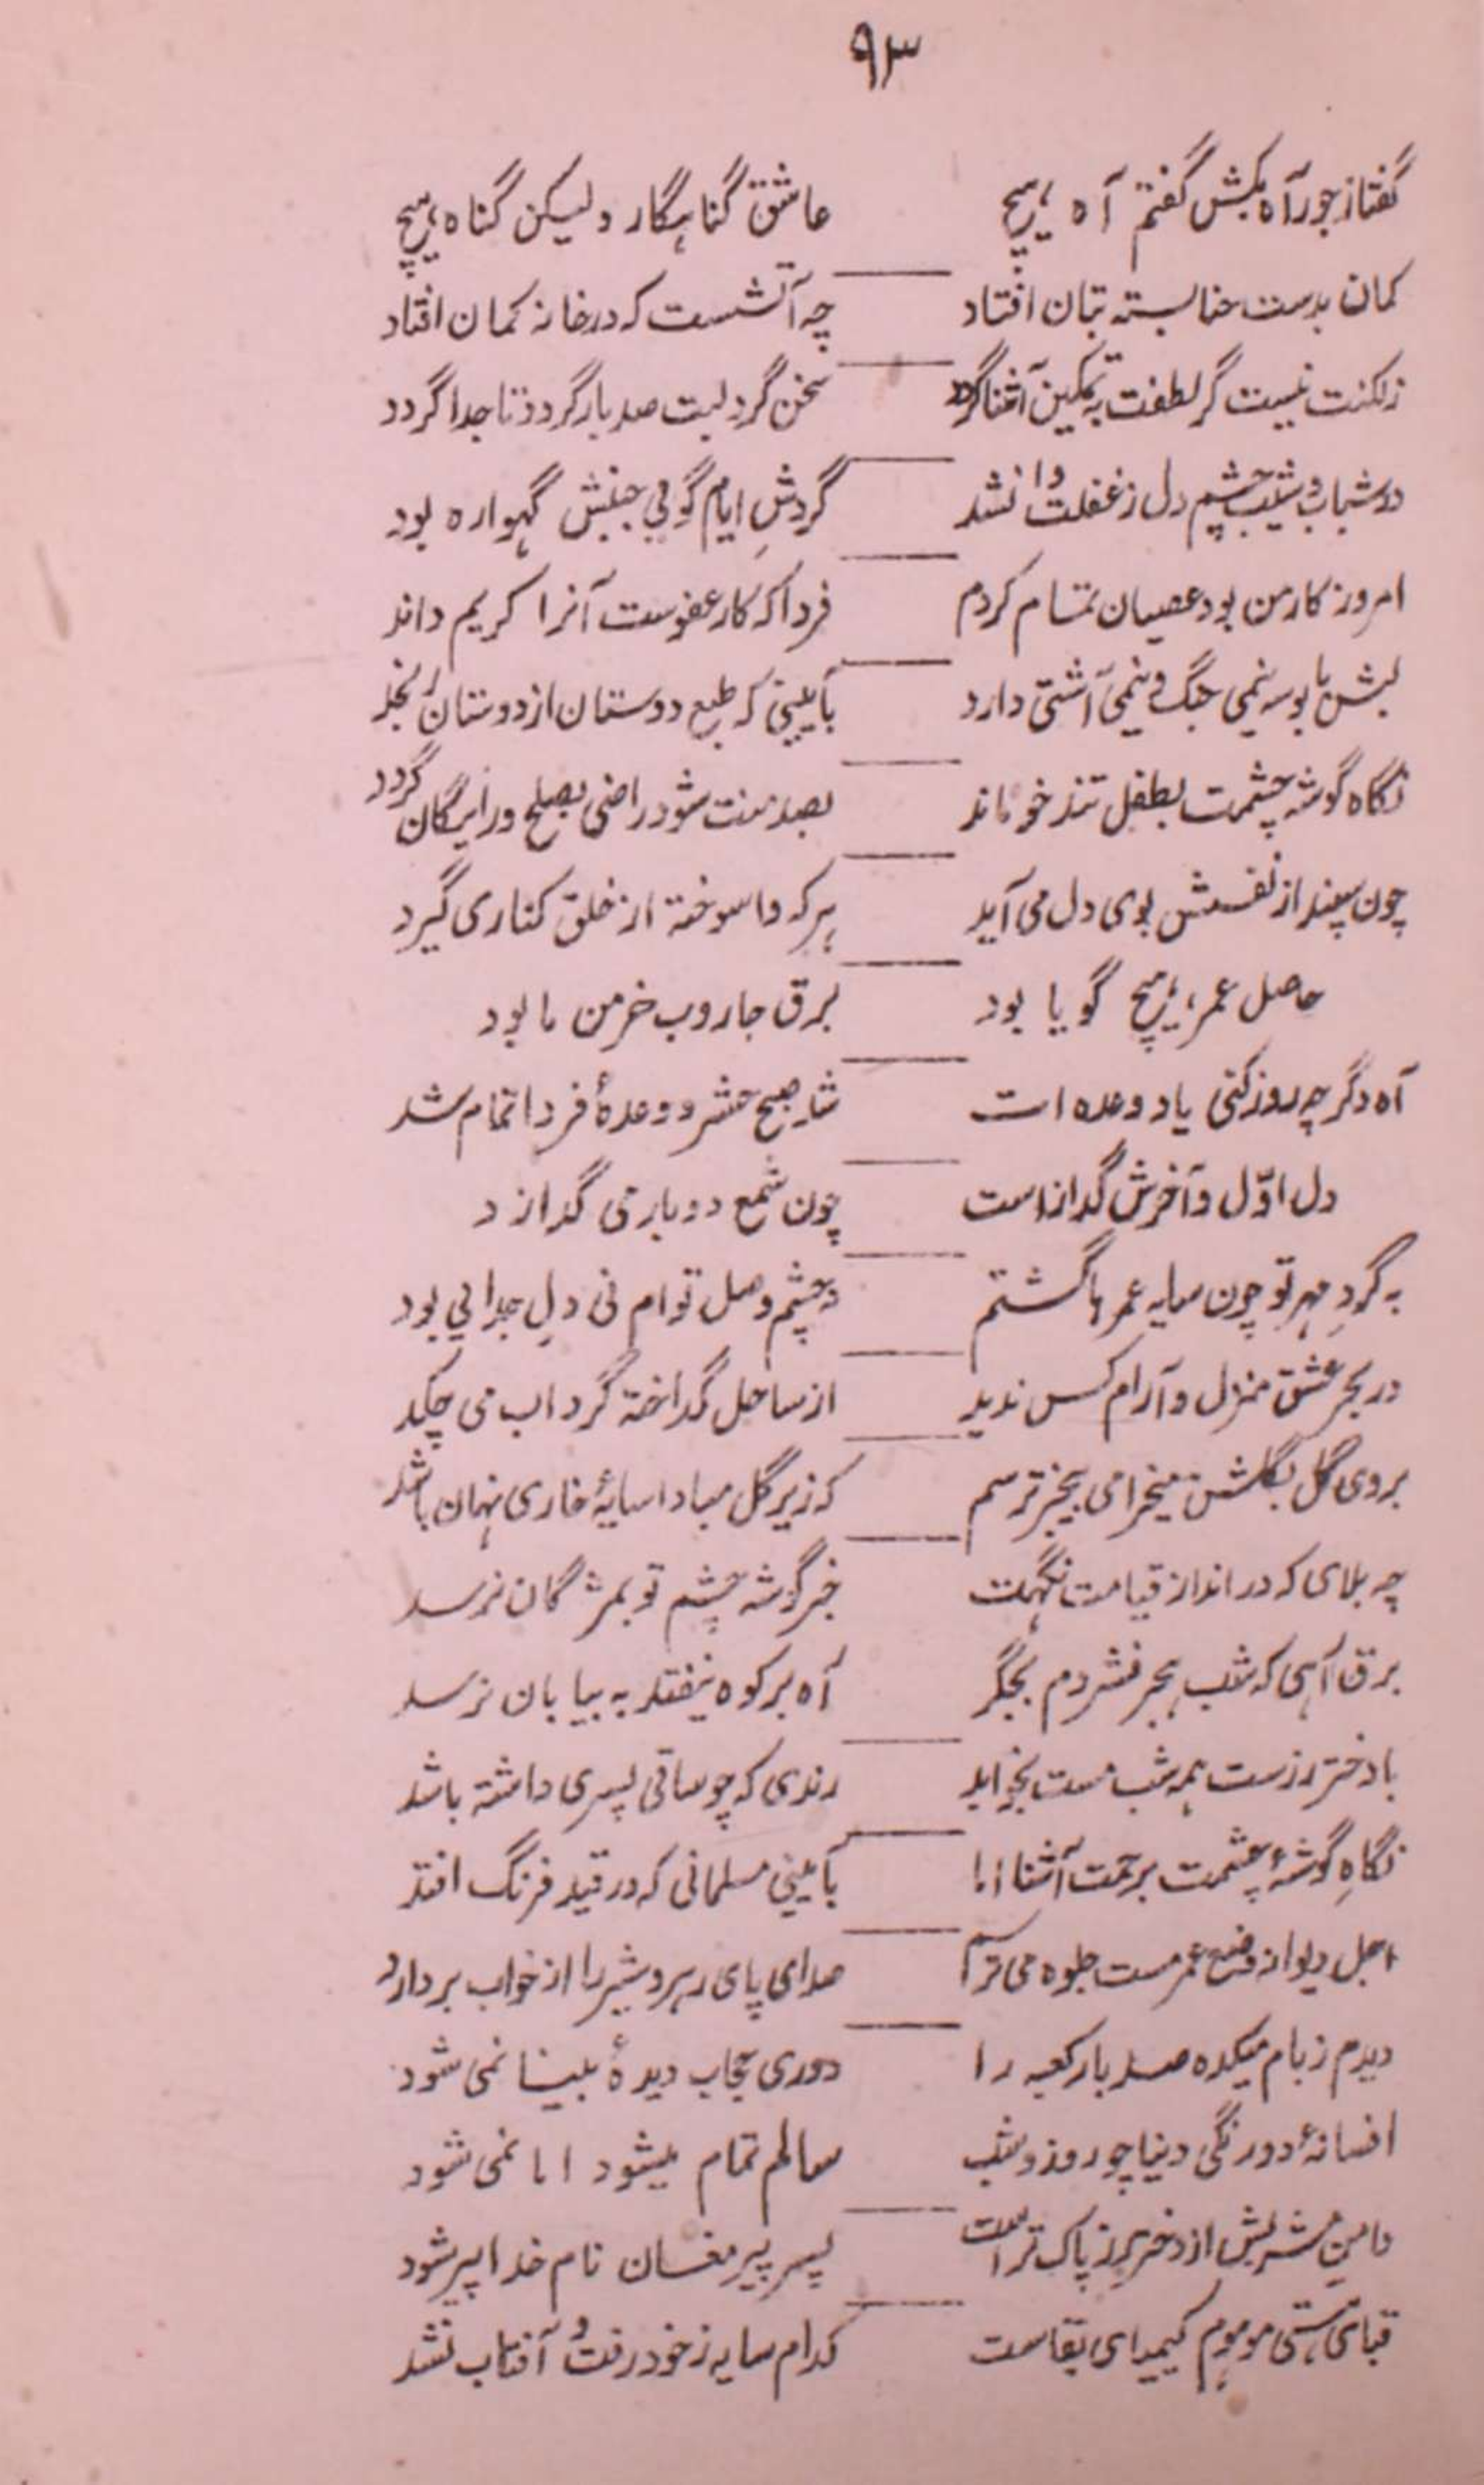 ۹۳
گفتا ز جور آه بکش گفتم آه ہیچ عاشق گناہگار ولیکن گناه ہیچ
کمان بدست حنا بسته بتان افتاد چه آتشست که در خانه کمان افتاد
ز لکنت نیست گر لطفت به تمکین آشنا گردد سخن گرد لبت صد بار گردد تا جدا گردد
در شباب و شیب چشم دل ز غفلت وا نشد گردشِ ایام گویی جنبش گہواره بود
امروز کار من بود عصیان تمام کردم فردا که کار عفوست آنرا کریم داند
لبش با بوسه نیمی جنگ و نیمی آشتی دارد بآیینی که طبع دوستان از دوستان رنجد
نگاه گوشه چشمت بطفل تندخو ماند بصد منت شود راضی بصلح و رایگان گردد
چون سپند از نفسش بوی دل می آید ہر که واسوخته از خلق کناری گیرد
حاصل عمر ہیچ گویا بود برق جاروب خرمن ما بود
آه دگر چه روز کنی یاد وعده است شد صبح حشر و وعدهٔ فردا تمام شد
دل اوّل و آخرش گداز است چون شمع دوبار می گدازد
به گردِ مہر تو چون سایه عمر ہا گشتم نه چشم وصل توام نی دلِ جدایی بود
در بحر عشق منزل و آرام کس ندید از ساحل گداخته گرداب می چکد
بروی گل بگلشن میخرامی بیخبر ترسم که زیر گل مبادا سایهٔ خاری نہان باشد
چه بلای که در انداز قیامت نگہت خبر گوشه چشم تو بمژگان نرسد
برق آہی که شب ہجر فشردم بجگر آه بر کوه نیفتد به بیابان نرسد
با دختر رزست ہمه شب مست بخوابد رندی که چو ساقی پسری داشته باشد
نگاهِ گوشهٔ چشمت برحمت آشنا اما بآیینی مسلمانی که در قید فرنگ افتد
اجل دیوانه وضع عمر مست جلوه می ترسم صدای پای رہرو شیر را از خواب بردارد
دیدم ز بام میکده صد بار کعبه را دوری حجاب دیدهٔ بینا نمی شود
افسانهٔ دورنگی دنیا چو روز و شب سالم تمام میشود اما نمی شود
دامنِ مشربش از دختر رز پاک تر است پسر پیر مغان نام خدا پیر شود
قبای ہستی موہوم کیمیای بقاست کدام سایه ز خود رفت و آفتاب نشد